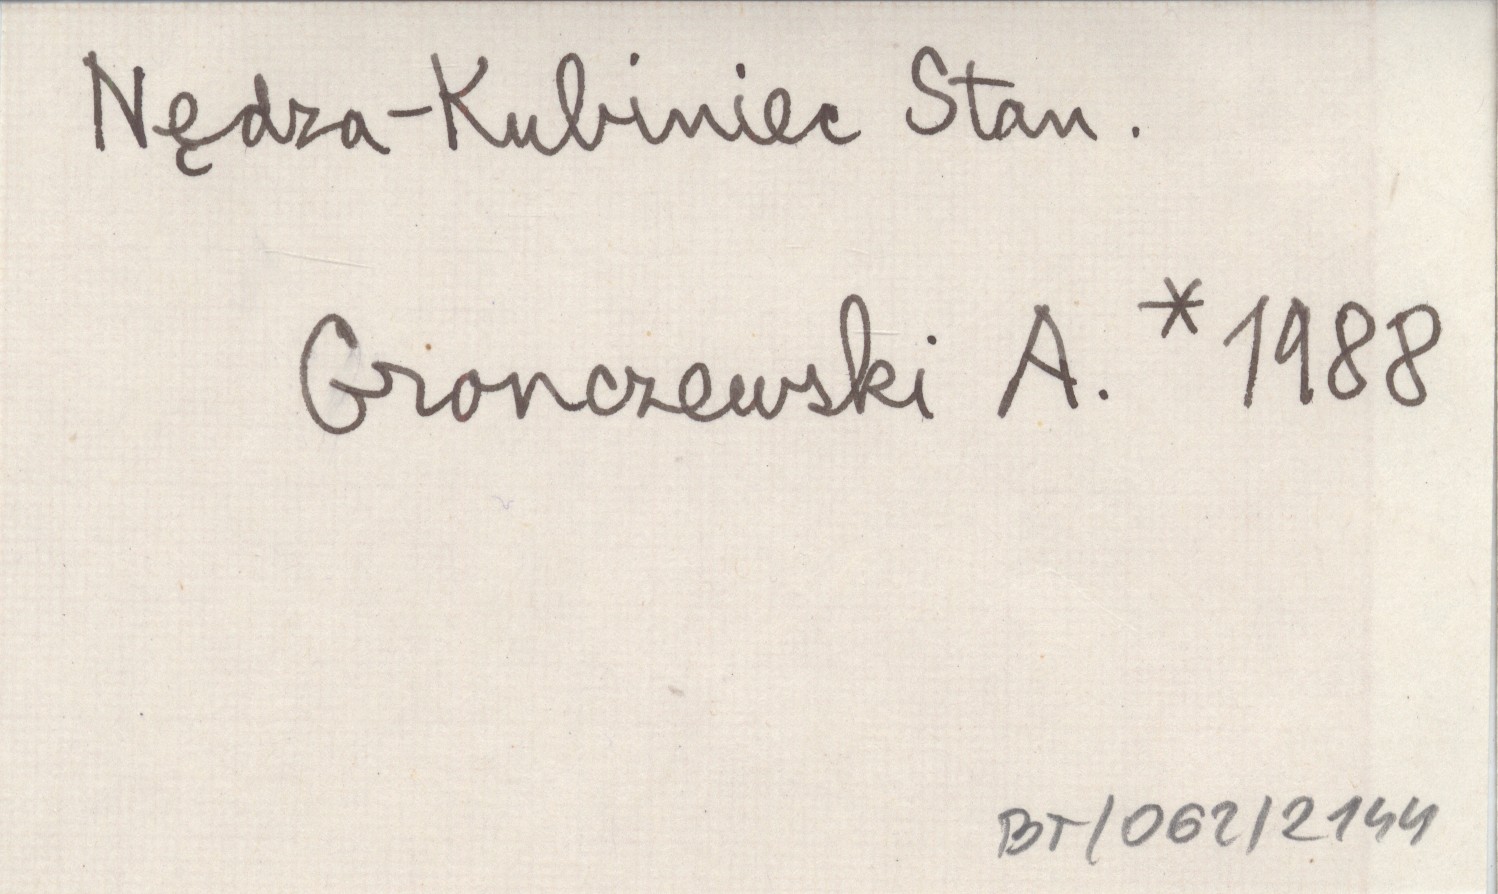 Nędza-Kubiniec Stan.
Gronczewski A. *1988
BT/062/2144